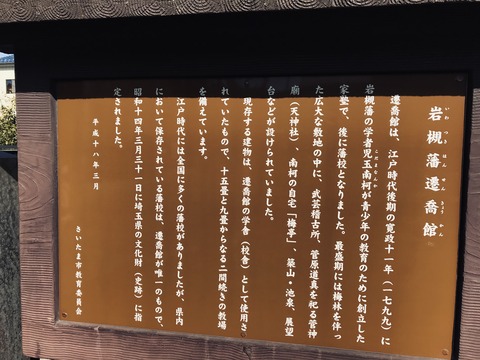 岩槻藩遷喬館
いわつきはんせんきょうかん
遷喬館は、江戸時代後期の寛政十一年（一七九九）に
岩槻藩の学者児玉南柯が青少年の教育のために創立した
こだまなんか
家塾で、後に藩校となりました。最盛期には梅林を伴っ
た広大な敷地の中に、武芸稽古所、菅原道真を祀る菅神
廟（天神社）、南柯の自宅「梅亭」、築山・池泉、展望
台などが設けられていました。
現存する建物は、遷喬館の学舎（校舎）として使用さ
れていたもので、十五畳と九畳からなる二間続きの教場
を備えています。
江戸時代には全国に多くの藩校がありましたが、県内
において保存されている藩校は、遷喬館が唯一のもので、
昭和十四年三月三十一日に埼玉県の文化財（史跡）に指
定されました。
平成十八年三月
さいたま市教育委員会